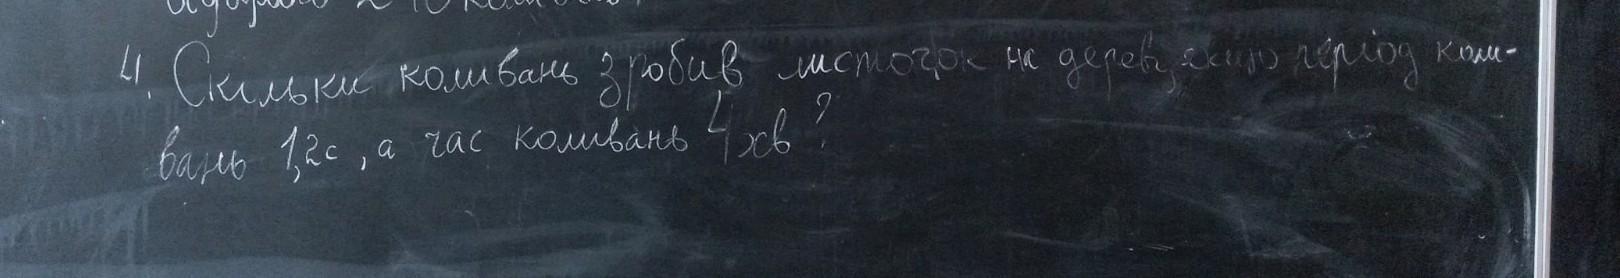 4. Скільки коливань зробив листочок на дереві, якщо період коли-
вань 1,2с, а час коливань 4хв?